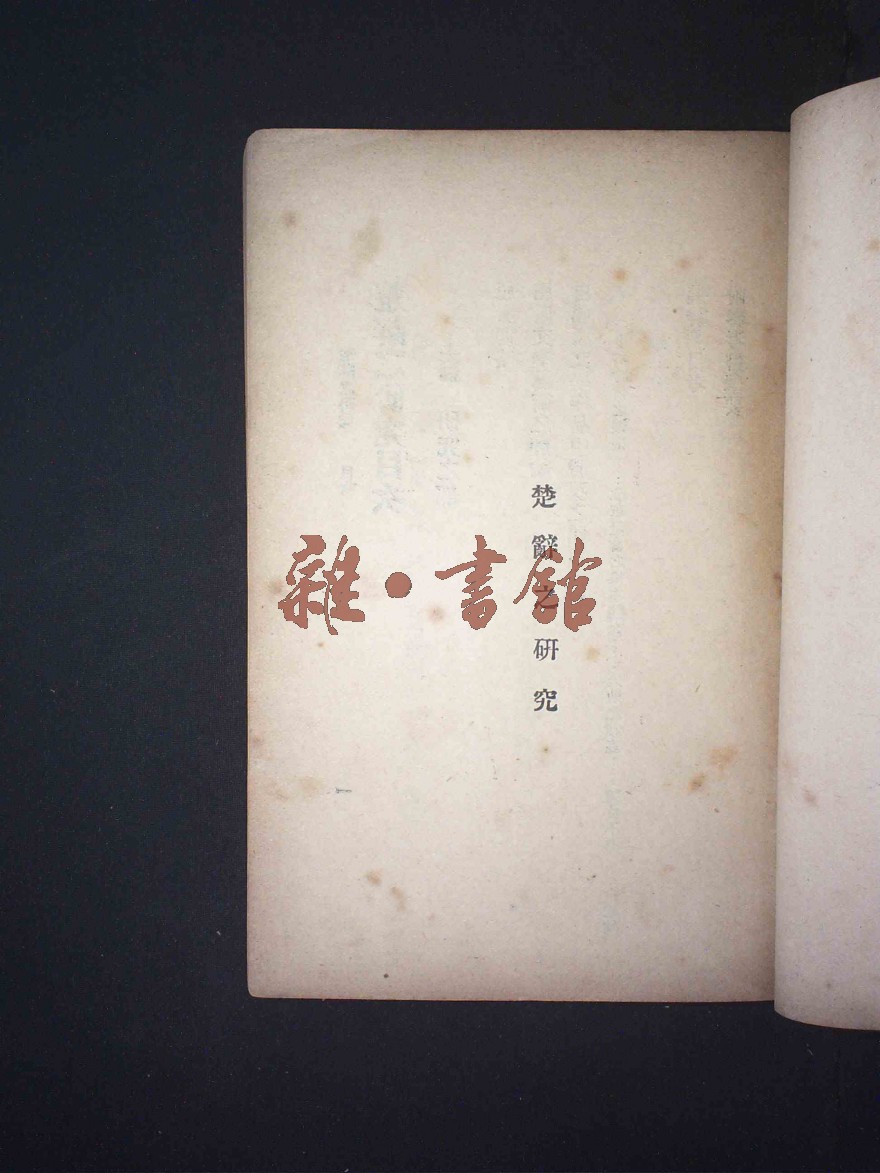 楚辭之研究
雜·書館